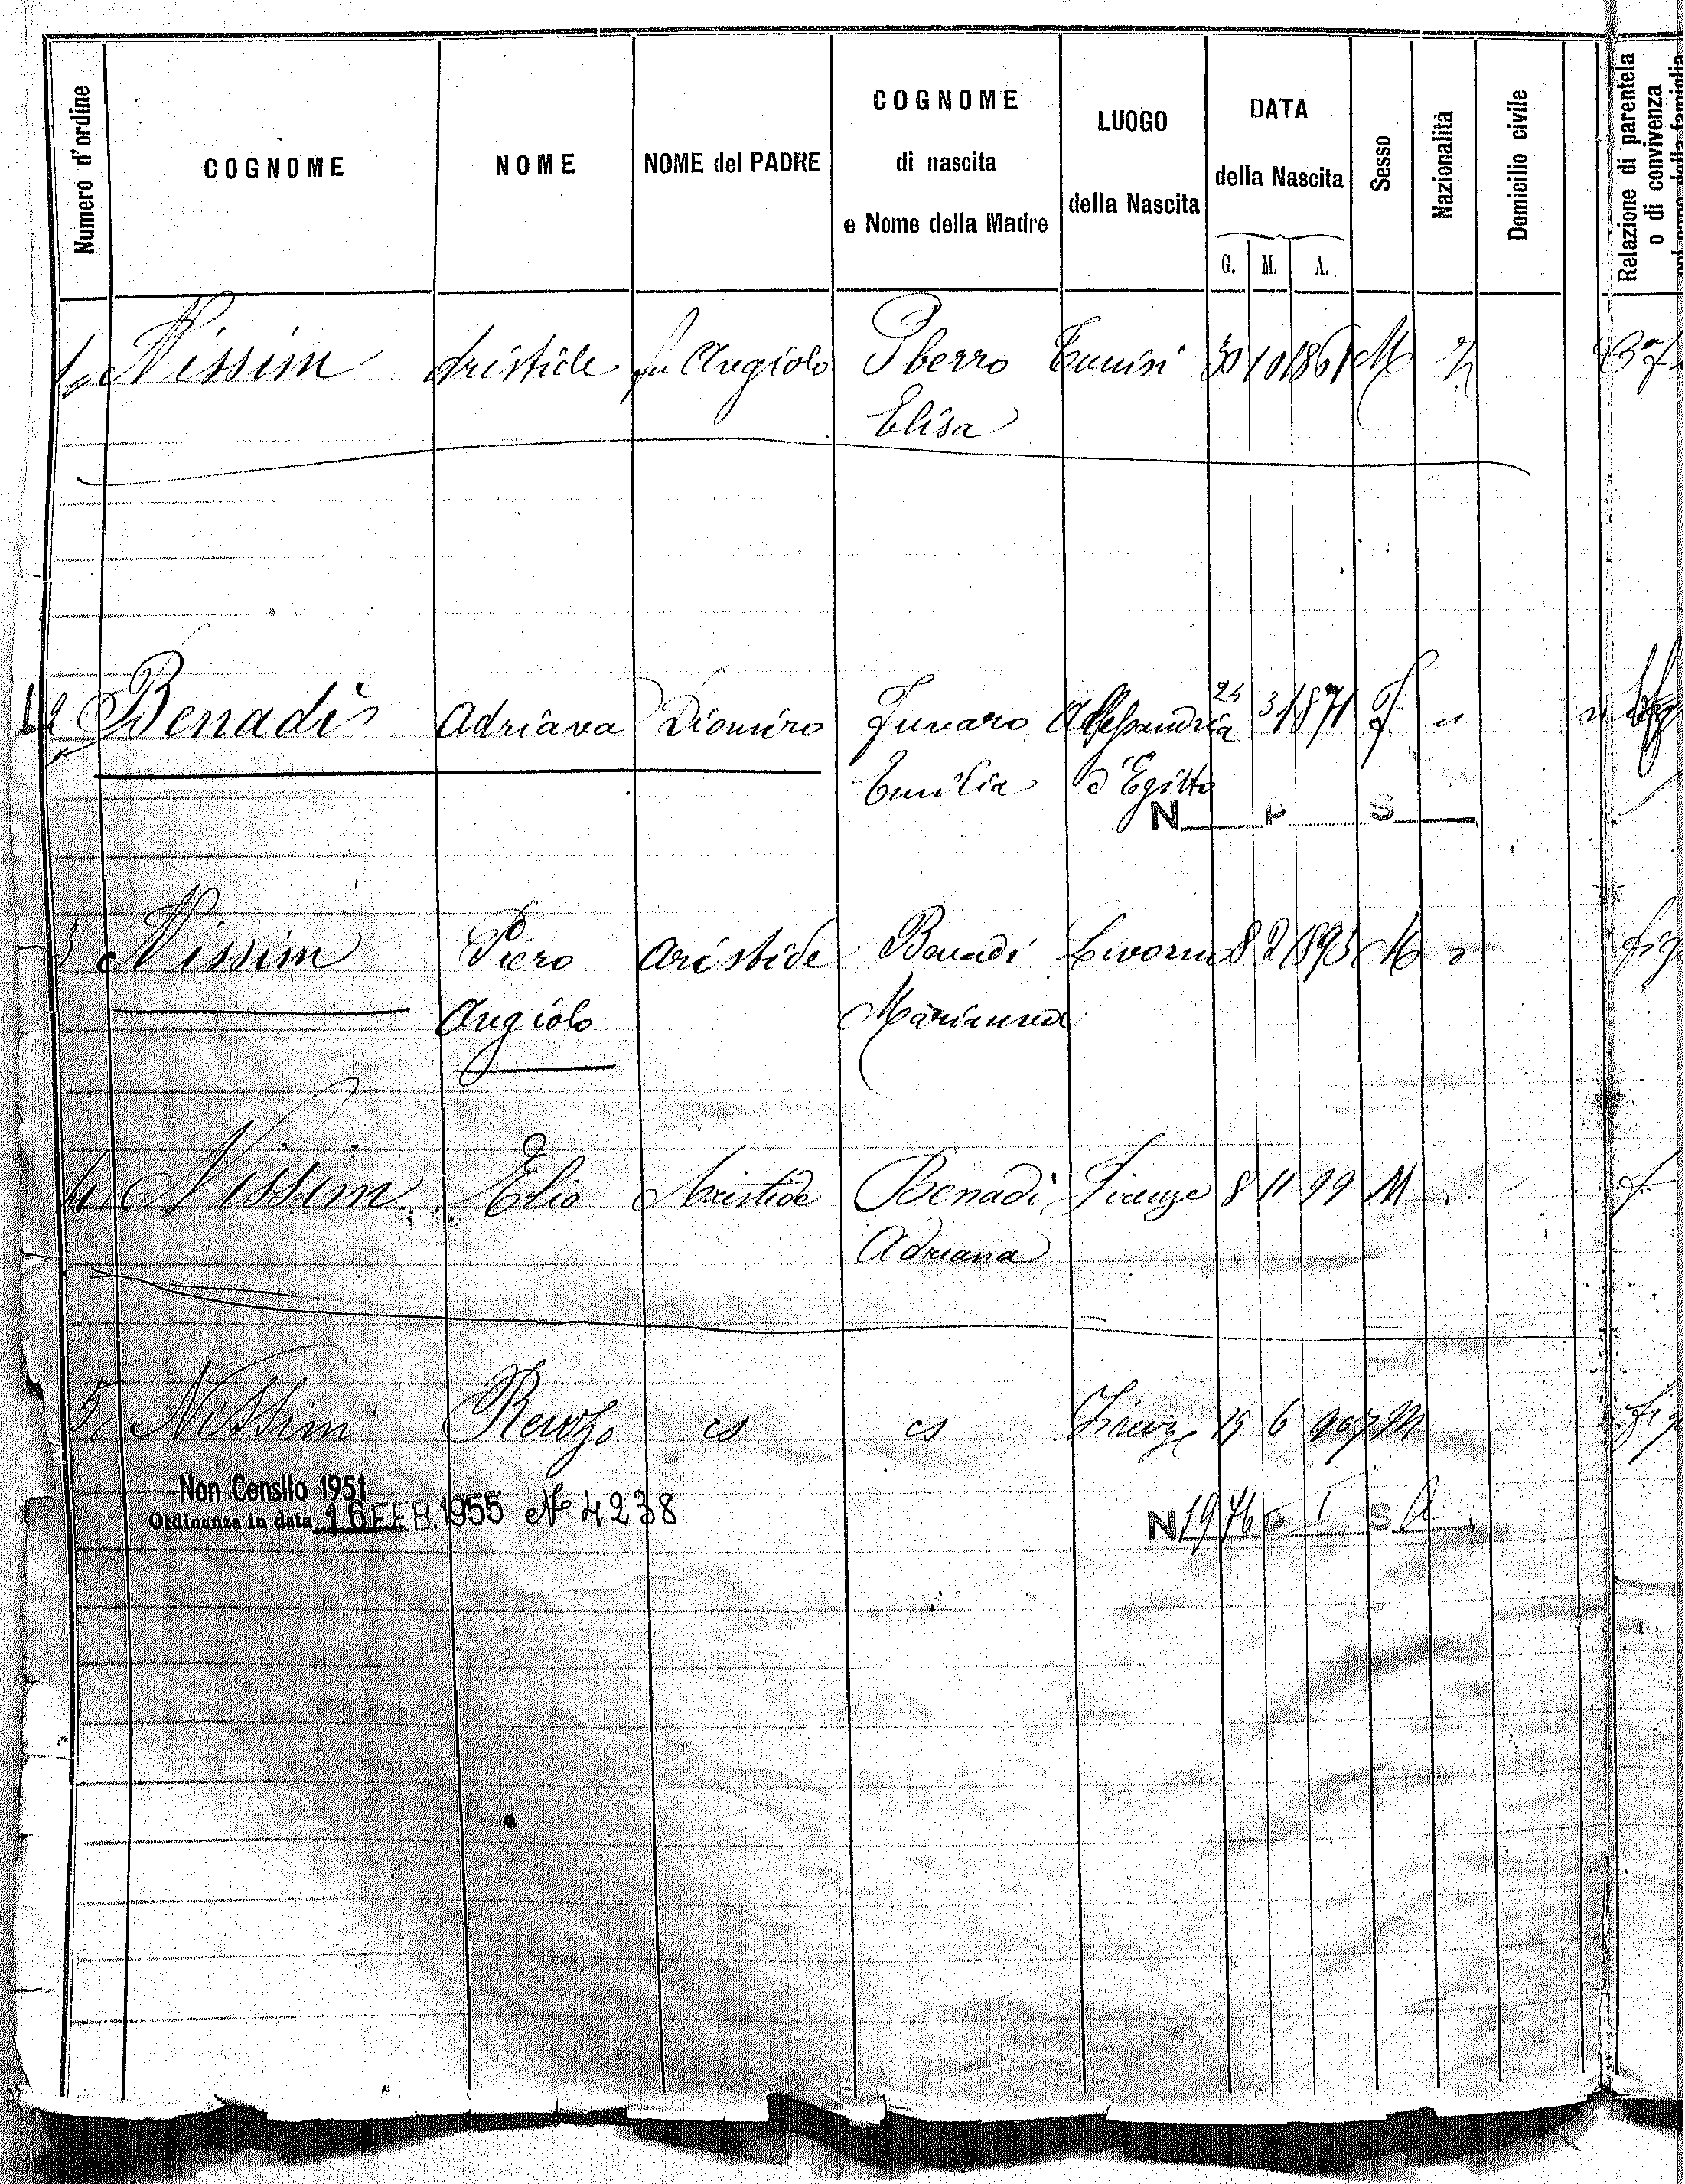 Numero d'ordine
COGNOME
NOME
NOME del PADRE
COGNOME
di nascita
e Nome della Madre
LUOGO
della Nascita
DATA
della Nascita
G. M. A.
Sesso
Nazionalità
Domicilio civile
Relazione di parentela
o di convivenza
1. Nissim Aristide fu Angiolo Sberro Tunisi 30 10 1861 M
Elisa
2 Benadì Adriana Diomiro Funaro Alessandria 24 3 1871 F "
Emilia d'Egitto
N P S
3 Nissim Piero Aristide Benadì Livorno 8 2 1893 M
Angiolo Marianna
4. Nissim Elio Aristide Benadì Firenze 8 11 99 M
Adriana
5. Nissim Renzo cs cs Firenze 15 6 907 M
Non Censito 1951
Ordinanza in data 16 FEB. 1955 No 4238
N 1976 P 1 S A